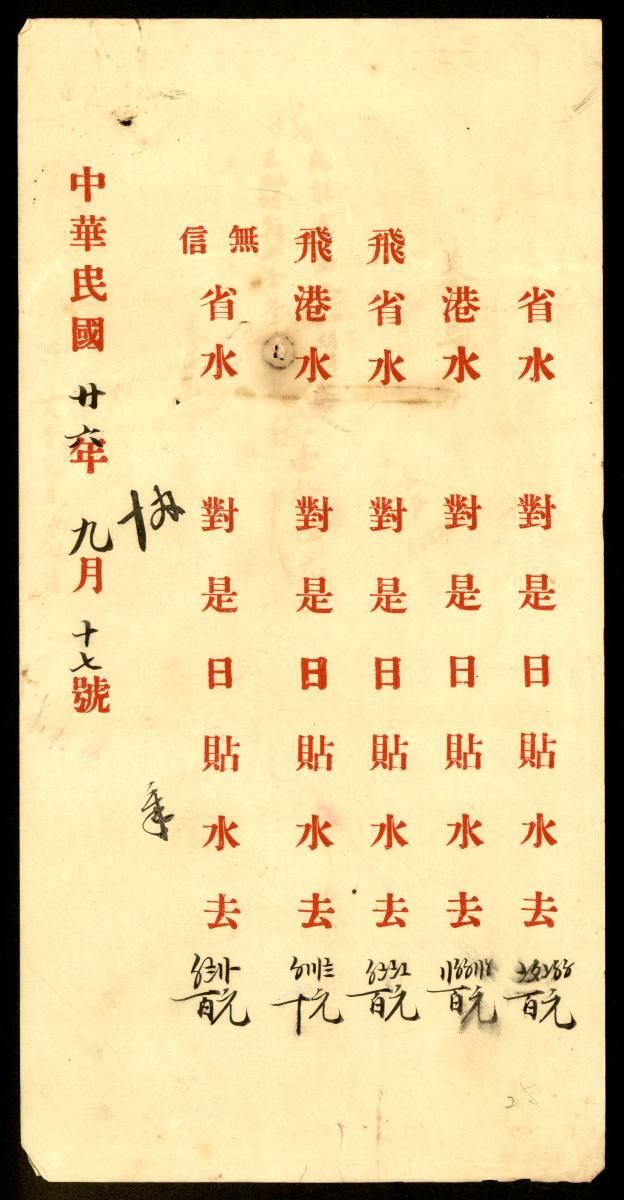 省水 對是日貼水去 百元
港水 對是日貼水去 百元
飛省水 對是日貼水去 百元
飛港水 對是日貼水去 十元
無信省水 對是日貼水去 百元
中華民國廿六年九月十七號